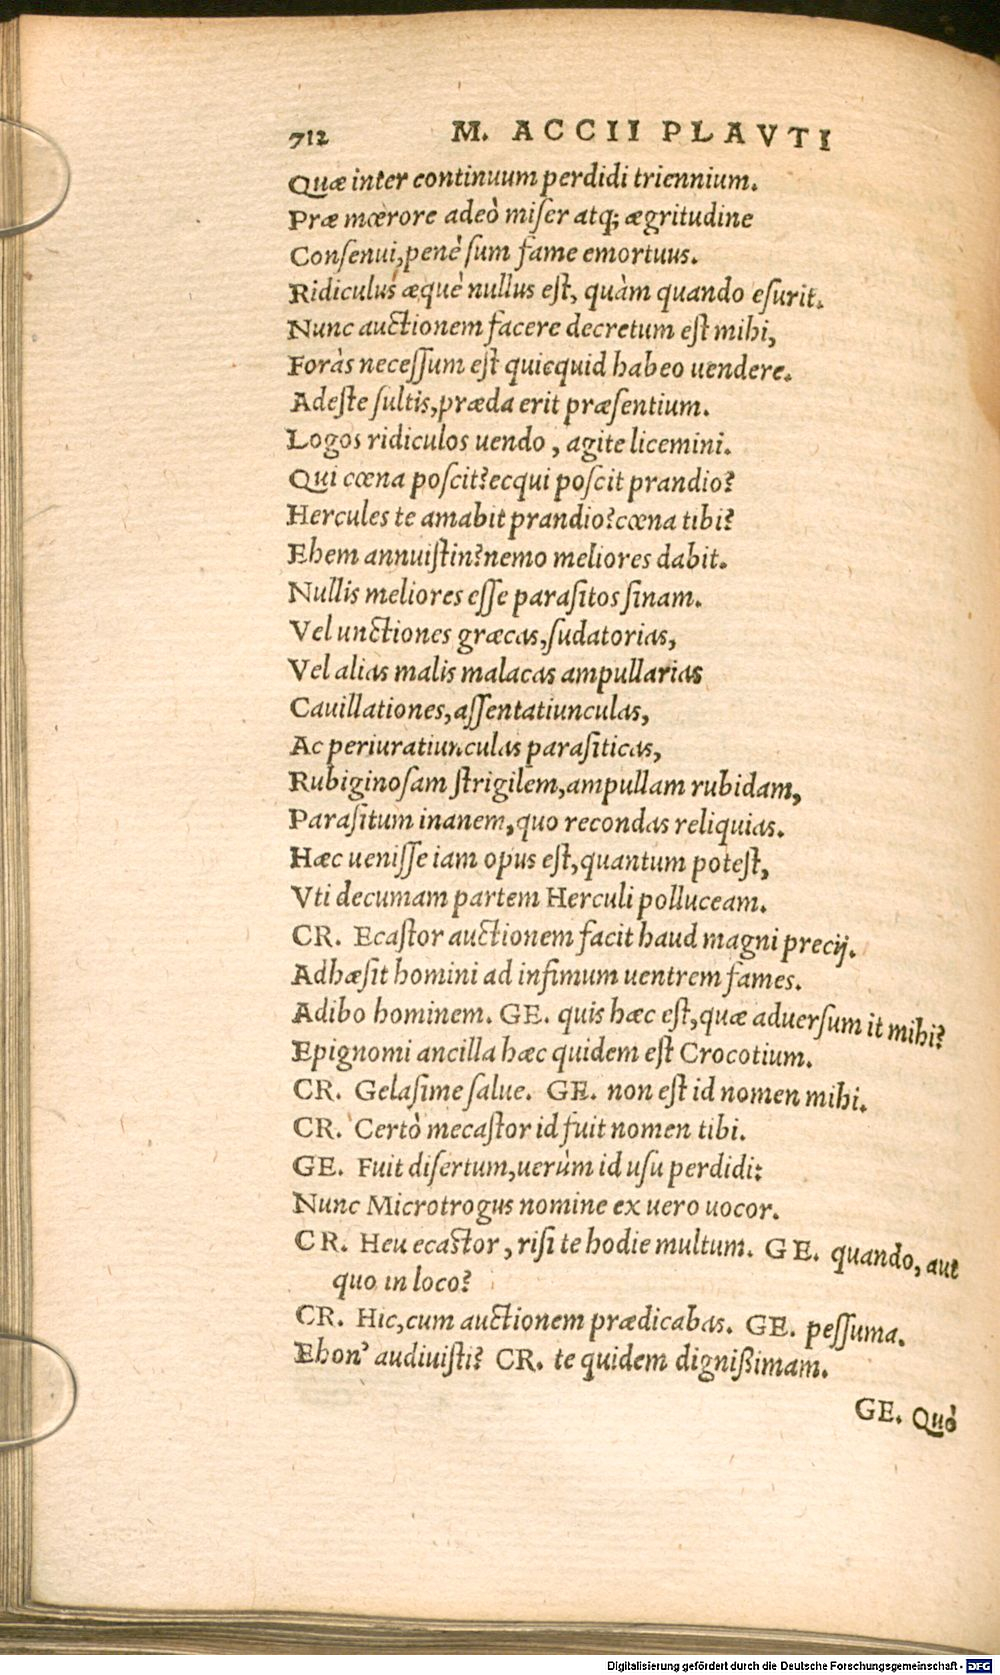 712 M. ACCII PLAVTI
Quæ inter continuum perdidi triennium.
Præ mœrore adeò miser atq; ægritudine
Consenui, penè sum fame emortuus.
Ridiculus æquè nullus est, quàm quando esurit.
Nunc auctionem facere decretum est mihi,
Foràs necessum est quicquid habeo uendere.
Adeste sultis, præda erit præsentium.
Logos ridiculos uendo, agite licemini.
Qui cœna poscit? ecqui poscit prandio?
Hercules te amabit prandio? cœna tibi?
Ehem annuistin? nemo meliores dabit.
Nullis meliores esse parasitos sinam.
Vel unctiones græcas, sudatorias,
Vel alias malis malacas ampullarias
Cauillationes, assentatiunculas,
Ac periuratiunculas parasiticas,
Rubiginosam strigilem, ampullam rubidam,
Parasitum inanem, quo recondas reliquias.
Hæc uenisse iam opus est, quantum potest,
Vti decumam partem Herculi polluceam.
CR. Ecastor auctionem facit haud magni precij.
Adhæsit homini ad infimum uentrem fames.
Adibo hominem. GE. quis hæc est, quæ aduersum it mihi?
Epignomi ancilla hæc quidem est Crocotium.
CR. Gelasime salue. GE. non est id nomen mihi.
CR. Certò mecastor id fuit nomen tibi.
GE. Fuit disertum, uerùm id usu perdidi:
Nunc Microtrogus nomine ex uero uocor.
CR. Heu ecastor, risi te hodie multum. GE. quando, aut
quo in loco?
CR. Hic, cum auctionem prædicabas. GE. pessuma.
Ehon' audiuisti? CR. te quidem dignißimam.
GE. Quò
Digitalisierung gefördert durch die Deutsche Forschungsgemeinschaft - DFG